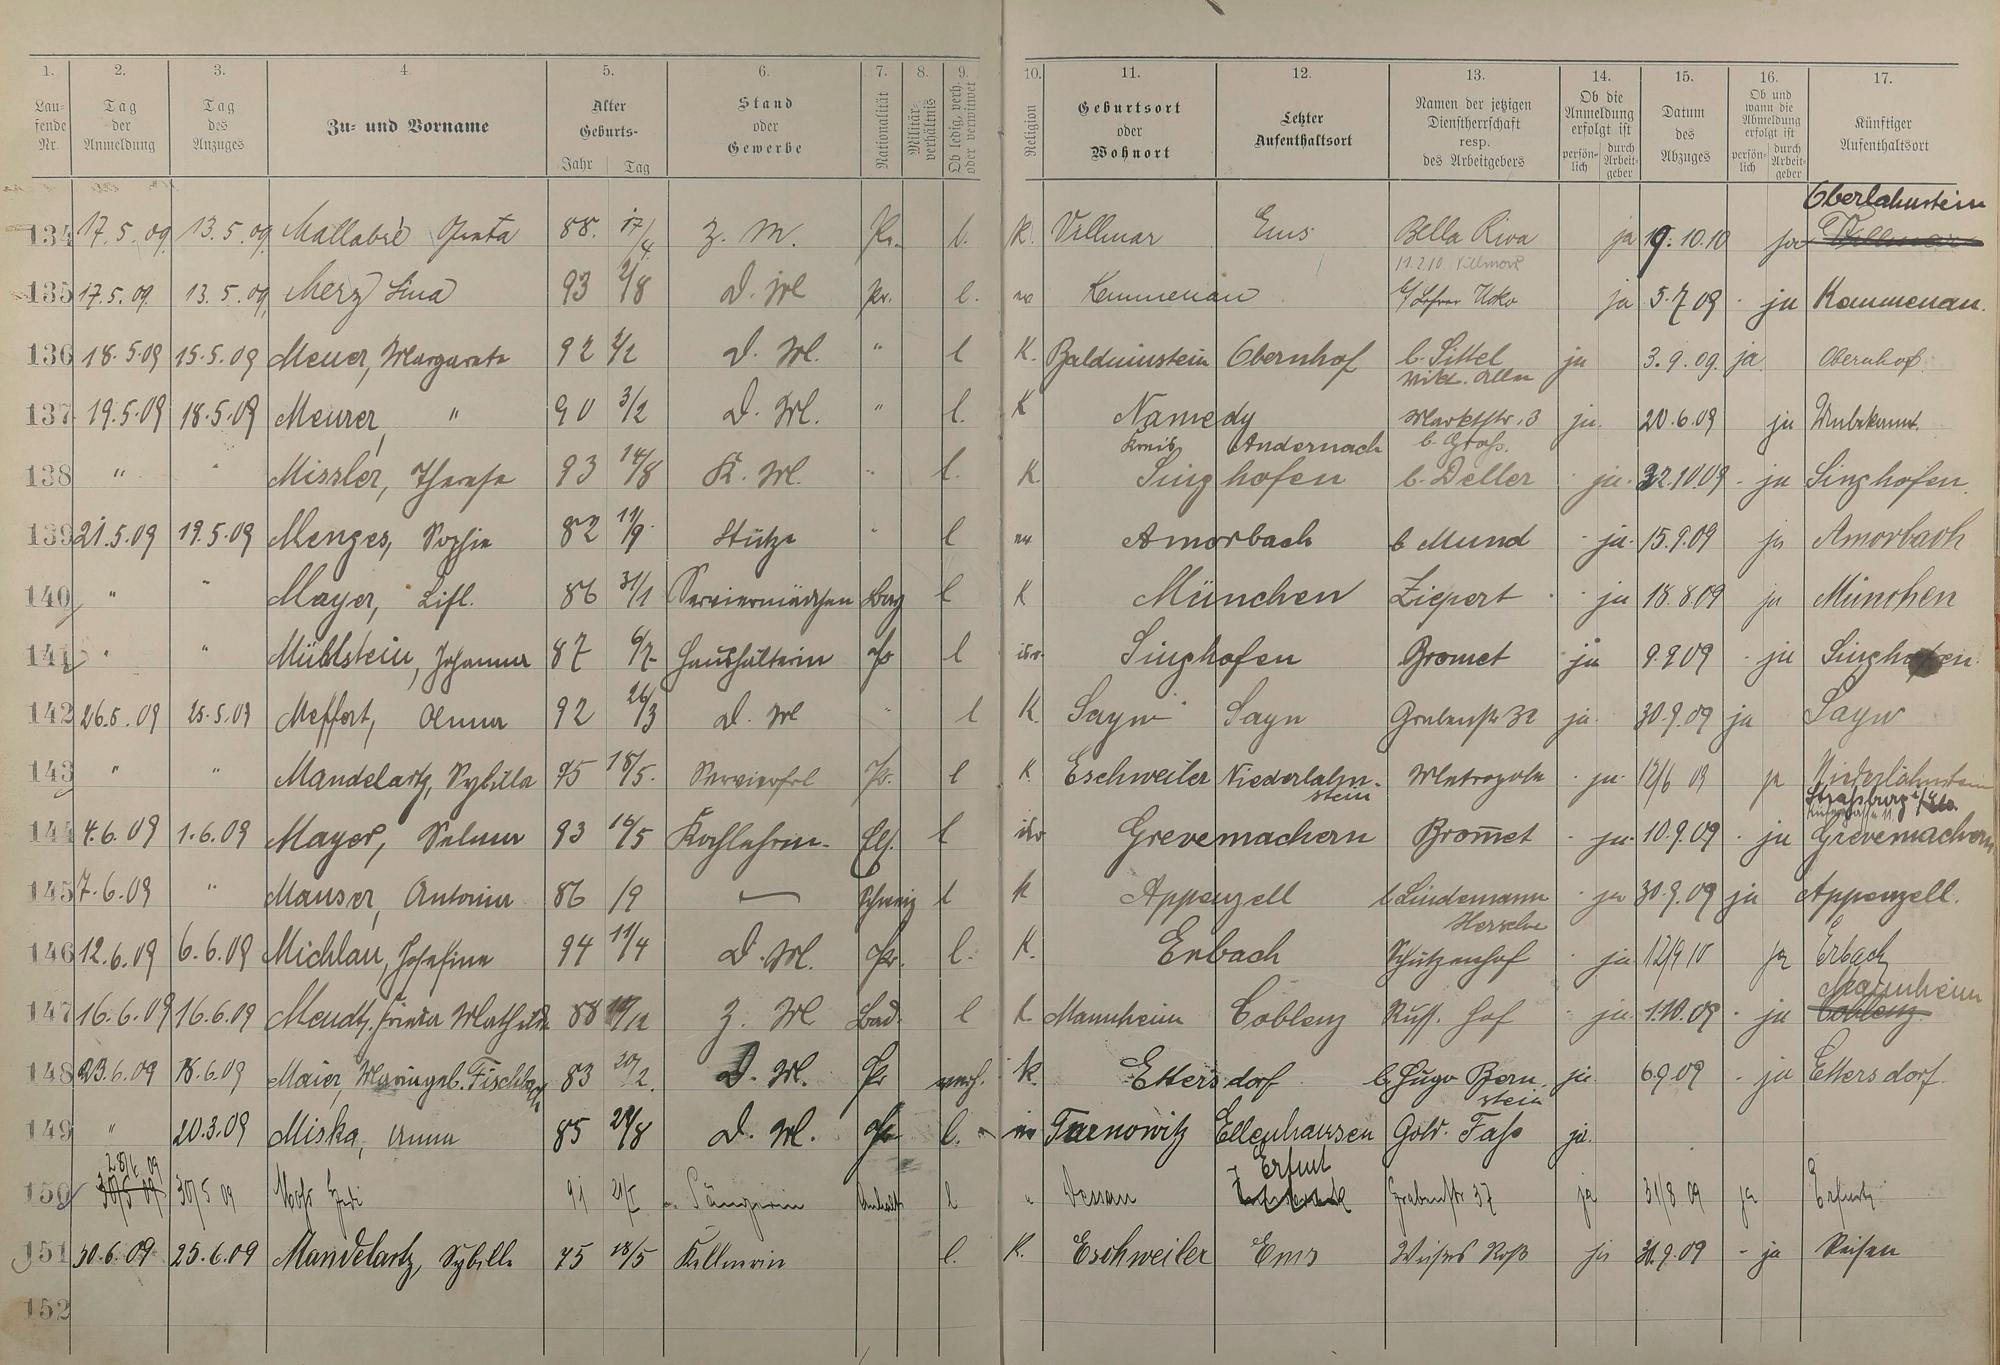 1. 2. 3. 4. 5. 6. 7. 8. 9. 10. 11. 12. 13. 14. 15. 16. 17.
Lau-fende Nr. Tag der Anmeldung Tag des Anzuges Zu- und Vorname Alter Geburts- Jahr Tag Stand oder Gewerbe Nationalität Militär-verhältnis Ob ledig, verh. oder verwitwet Religion Geburtsort oder Wohnort Letzter Aufenthaltsort Namen der jetzigen Dienstherrschaft resp. des Arbeitgebers Ob die Anmeldung erfolgt ist persön-lich durch Arbeit-geber Datum des Abzuges Ob und wann die Abmeldung erfolgt ist persön-lich durch Arbeit-geber Künftiger Aufenthaltsort
Oberlahnstein
134 17.5.09. 13.5.09. Mallabré 88. 17/4 Z. M. Pr. l. K. Villmar Ems Bella Riva ja 19.10.10 ja Villmar
11.2.10 Villmar
135 17.5.09. 13.5.09. Merz Lina 93 2/8 D. M pr. l. ev Kemmenau ja 5.7.09 - ja Kemmenau.
136 18.5.09 15.5.09 Meuer, Margarete 92 2/2 D. M. " l K. Balduinstein Obernhof b. Sittel ja 3.9.09. ja Obernhof
Vikt. Allee
137 19.5.09 18.5.09 Meurer, " 90 3/2 D. M. " l. K Namedy Marktstr. 3 ja. 20.6.09 ja Unbekannt.
Kreis Andernach b. Groß.
138 " " Missler, Therese 93 14/8 K. M. " l. K. Singhofen b. Deller ja. 22.10.09 - ja Singhofen.
139 21.5.09 19.5.09 Menges, Sophie 82 11/9 Stütze " l ev Amorbach b Mund ja. 15.9.09 ja Amorbach
140 " " Mayer, Lisl. 86 31/1 Serviermädchen Bay l K München Ziepert ja 18.8.09 ja München
141 " " Mühlstein, Johanna 87 6/7 Haushälterin Pr l isr. Singhofen Bromet ja 9.9.09 - ja Singhofen.
142 26.5.09 25.5.09 Meffert, Anna 92 26/3 D. M " l K. Sayn Sayn Grabenstr 32 ja. 30.9.09 ja Sayn
143 " " Mandelartz, Sybilla 75 18/5. Servierfrl Pr. l K. Eschweiler Niederlahn- Metropole - ja. 12/6 09 ja Niederlahnstein
stein Straßburg i/Els.
144 4.6.09 1.6.09 Mayer, Selma 93 16/5 Kochlehrin- Els. l isr Grevemachern Bromet - ja. 10.9.09 - ja Grevemachern
145 7.6.09 " Mauser, Antonia 86 /9 — Schweiz l k Appenzell b Lindemann - ja 30.9.09 ja Appenzell.
Hersche
146 12.6.09 6.6.09 Michlau, Josefine 94 11/4 D. M. Pr. l. K. Erbach Schützenhof ja 12/9 10 ja Erbach
Mannheim
147 16.6.09 16.6.09 Mendtz, Mathilde 88 /12 Z. M Bad. l k. Mannheim Coblenz Russ. Hof - ja. 1.10.09 - ja Coblenz
148 23.6.09 18.6.09 Maier, Maria geb. Fischbach 83 20/2. D. M. Pr verh. k. Ettersdorf b. Hugo Bern- ja 6.9.09 - ja Ettersdorf.
stein
149 " 20.3.09 Miska, Anna 85 29/8 D. M. Pr l. ev Tarnowitz Ellenhausen Gold. Faß ja.
28/6 09 Erfurt
150 30/5 09 30/5 09 91 Sängerin Anhalt l " Dessau Grabenstr 37 ja 31/8 09 ja Erfurt
151 30.6.09 25.6.09 Mandelartz, Sybille 75 18/5 Kellnerin l. K. Eschweiler Ems Weißes Roß ja 30.9.09 - ja Reisen
152